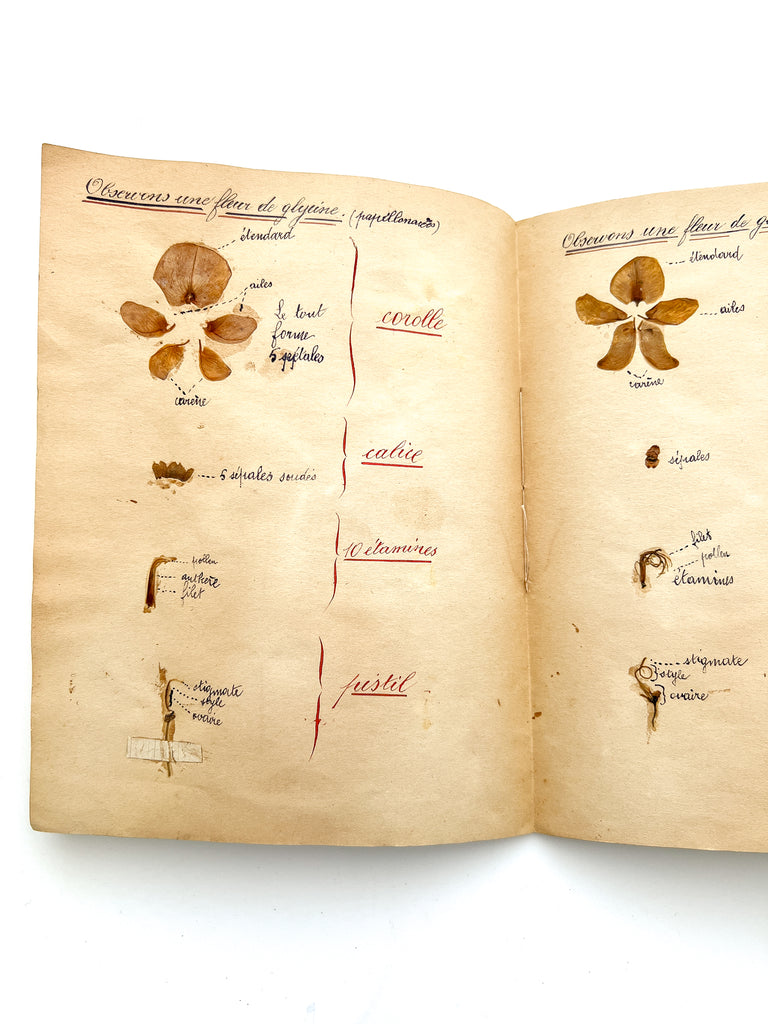 Observons une fleur de glycine. (papillonacés)
étendard
ailes
Le tout
forme
5 pétales
carène
corolle
5 sépales soudés
calice
pollen
anthère
filet
10 étamines
stigmate
style
ovaire
pistil
Observons une fleur de
étendard
ailes
carène
sépales
filet
pollen
étamines
stigmate
style
ovaire